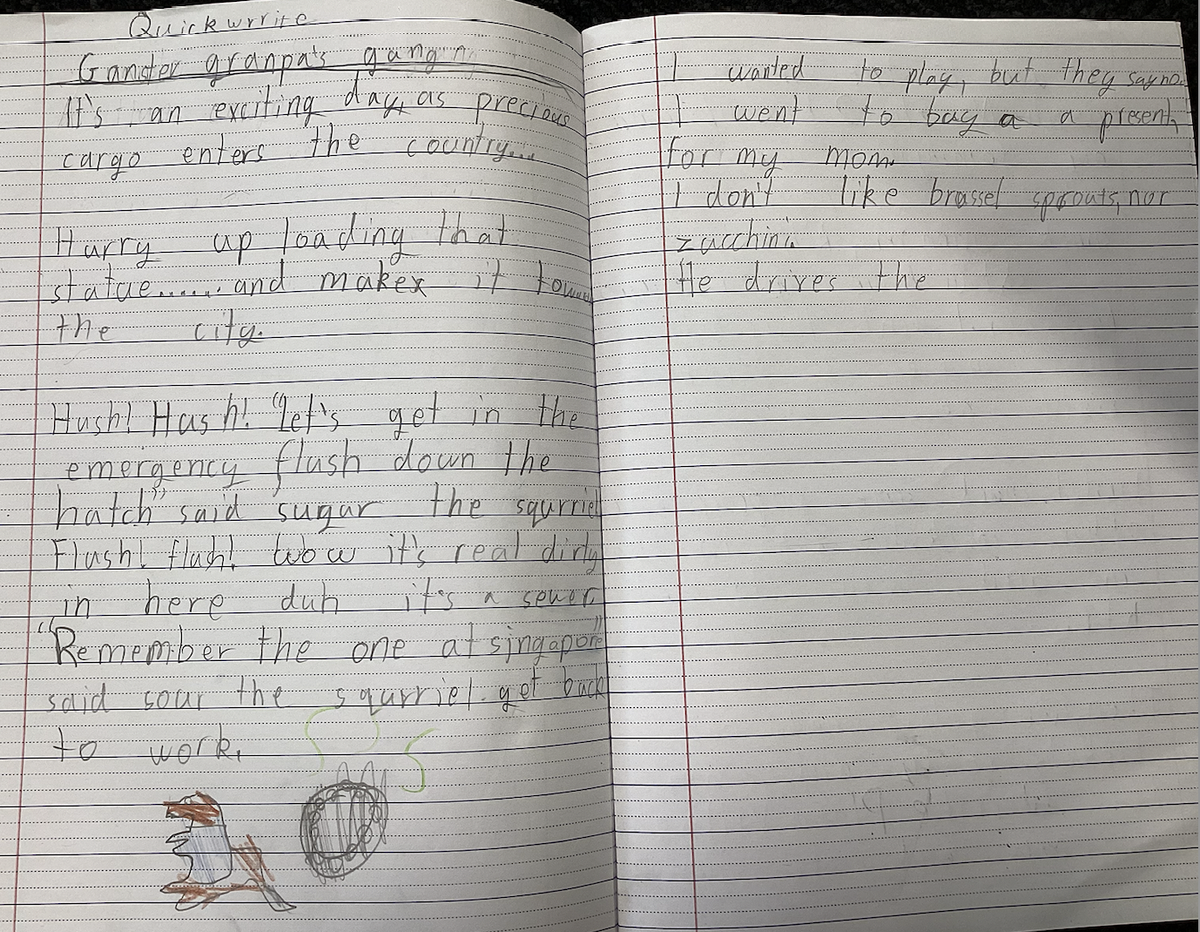 Quickwrite
Ganster granpa's gang
It's an exciting day, as precious
cargo enters the country....
Hurry up loading that
statue....... and makex it
the city.
Hush! Hush! "let's get in the
emergency flush down the
hatch" said sugar the squrriel
Flush! flush! wow it's real dirty
in here duh it's a sewer.
"Remember the one at singapore"
said sour the squrriel. get back
to work.
I wanted to play, but they say no.
I went to buy a a present,
for my mom.
I don't like brussel sprouts, nor
zucchini.
He drives the